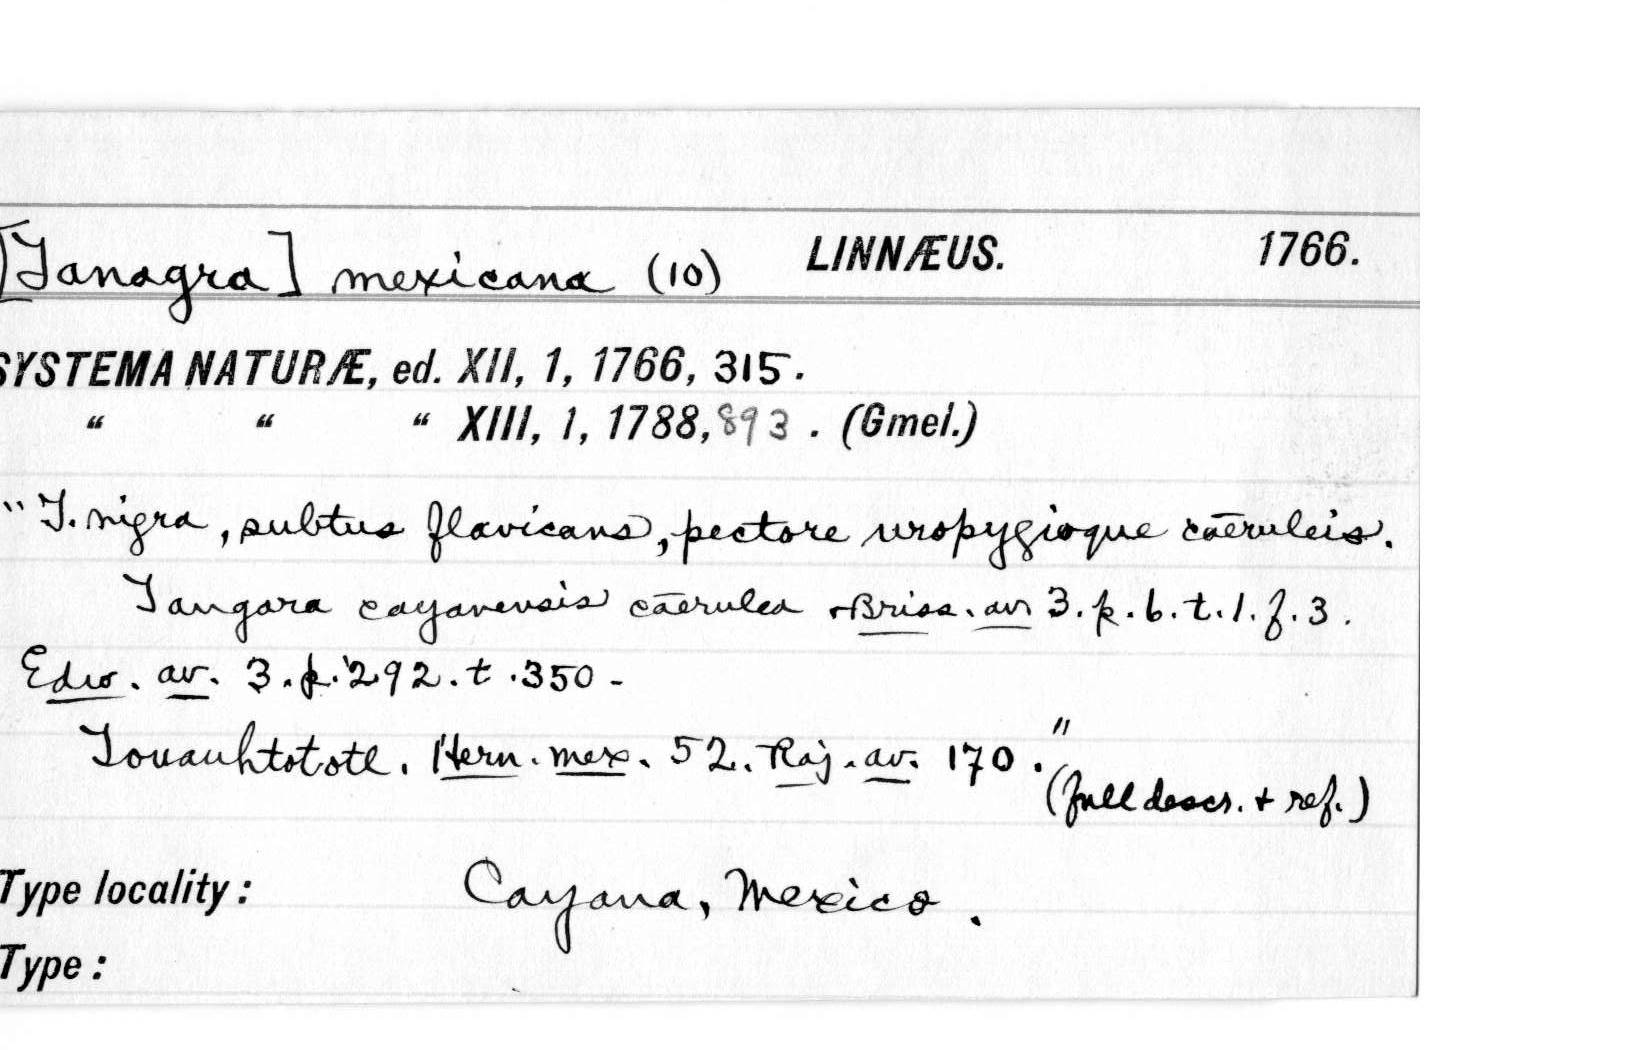 [Tanagra] mexicana (10) LINNÆUS. 1766.
SYSTEMA NATURÆ, ed. XII, 1, 1766, 315.
“ “ “ XIII, 1, 1788, 893. (Gmel.)
"T. nigra, subtus flavicans, pectore uropygioque cæruleis.
Tangara cayanensis cærulea Briss. av 3. p. 6. t. 1. f. 3.
Edw. av. 3. p. 292. t. 350-
Touauhtototl. Hern. mex. 52. Raj. av. 170."
(full descr. + ref.)
Type locality: Cayana, Mexico.
Type: